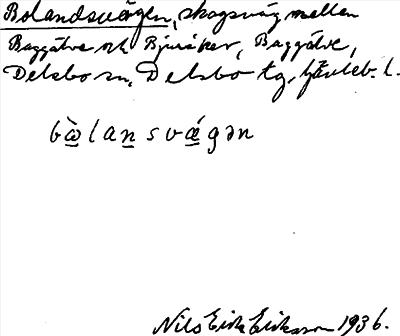 Bolandsvägen, skogsväg mellan
Baggätve och Bjuråker, Baggätve,
Delsbo sn, Delsbo tg, Gävleb. l.
bɷ̀lansvǽgən
Nils Erik Eriksson 1936.